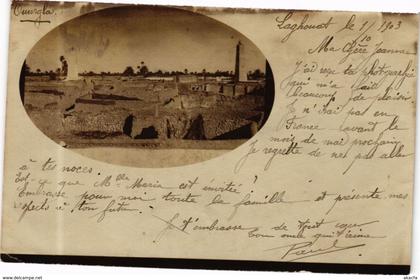 Ouargla.
Laghouat le 1/10 1903
Ma Chère Jeanne
J'ai reçu ta photographie
qui m'a fait
beaucoup de plaisir
Je n'irai pas en
France avant le
mois de mai prochain
Je regrette de ne pas aller
à tes noces.
Est-ce que Mlle Maria est invité?
Embrasse pour moi toute la famille et présente mes
respects à ton futur.
Je t'embrasse de tout cœur
ton oncle qui t'aime
Paul